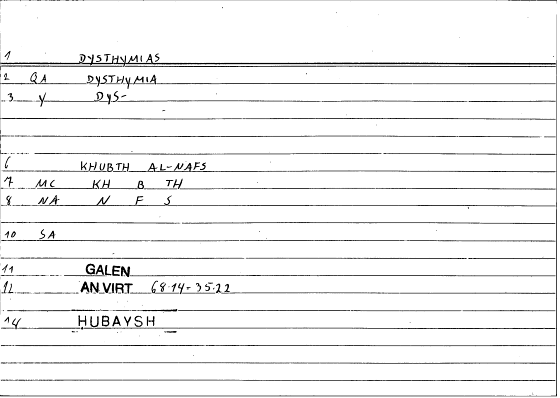 1 DYSTHYMIAS
2 QA DYSTHYMIA
3 Y DYS-
6 KHUBTH AL-NAFS
7 MC KH B TH
8 NA N F S
10 SA
11 GALEN
12 AN VIRT 68.14-35.22
14 HUBAYSH